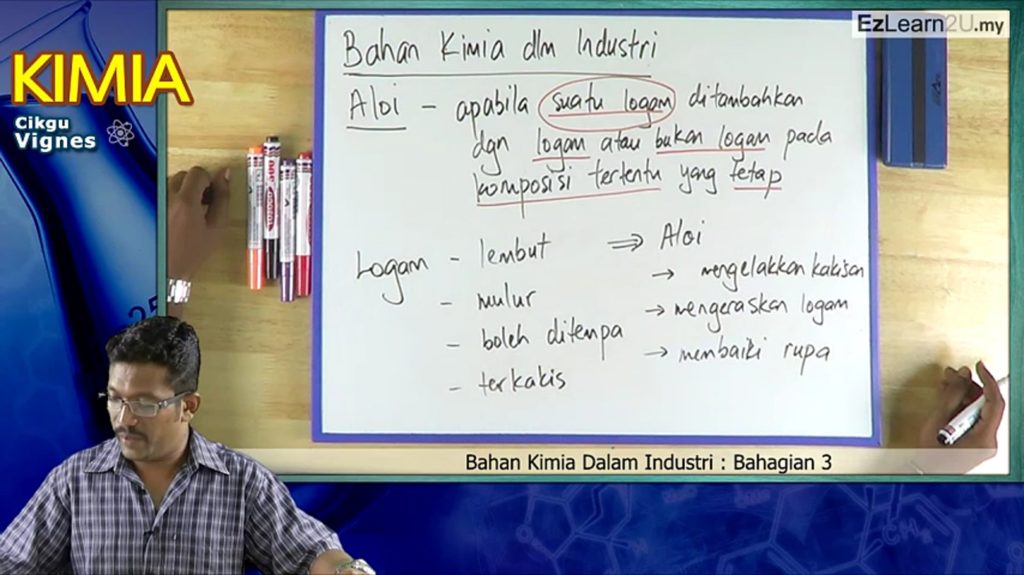 EzLearn2U.my
KIMIA
Cikgu
Vignes
Bahan Kimia dlm Industri
Aloi - apabila suatu logam ditambahkan
dgn logam atau bukan logam pada
komposisi tertentu yang tetap
Logam - lembut
- mulur
- boleh ditempa
- terkakis
⇒ Aloi
→ mengelakkan kakisan
→ mengeraskan logam
→ membaiki rupa
Bahan Kimia Dalam Industri : Bahagian 3